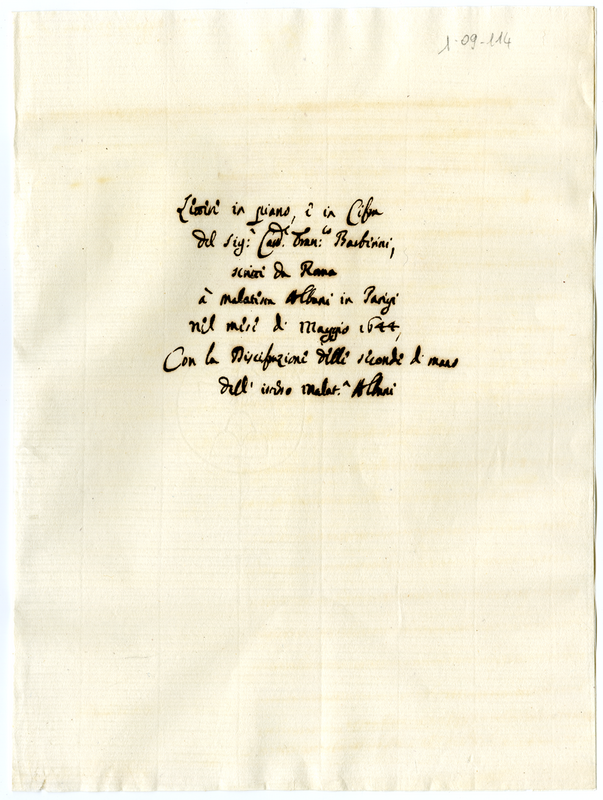 1-09-114
Lettere in piano, e in Cifra
del Sig:r Card.l Fran:co Barberini,
scritte da Roma
à Malatesta Albani in Parigi
nel mese di Maggio 1644,
Con la Discifrazione delle seconde di mano
dell' istesso Malat.a Albani